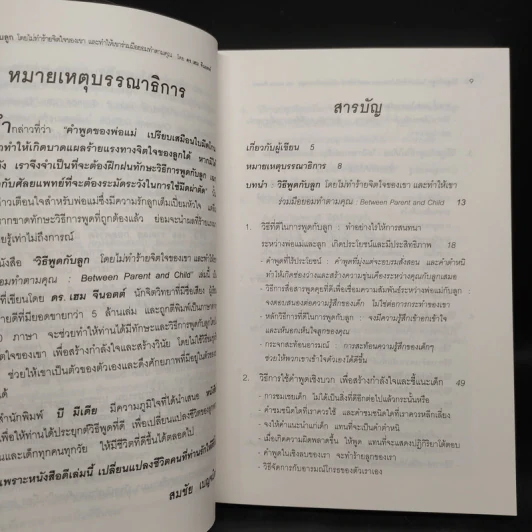 นลูก โดยไม่ทำร้ายจิตใจของเขา และทำให้เขาร่วมมือยอมทำตามคุณ
หมายเหตุบรรณาธิการ
กล่าวที่ว่า "คำพูดของพ่อแม่ เปรียบเสมือนใบมีดโกน
ทำให้เกิดบาดแผลร้ายแรงทางจิตใจของลูกได้ หากมิได้
เราจึงจำเป็นที่จะต้องฝึกฝนทักษะวิธีการพูดกับลูก
กับศัลยแพทย์ที่จะต้องระมัดระวังในการใช้มีดผ่าตัด"
กล่าวเตือนใจสำหรับพ่อแม่ซึ่งมีความรักลูกเต็มเปี่ยมหัวใจ
ขาดทักษะวิธีการพูดที่ถูกต้องแล้ว ย่อมจะนำผลที่ร้าย
รู้เท่าไม่ถึงการณ์
หนังสือ "วิธีพูดกับลูก โดยไม่ทำร้ายจิตใจของเขา และทำให้
ยอมทำตามคุณ : Between Parent and Child" เล่มนี้
ที่เขียนโดย ดร.เฮม จีนอตต์ นักจิตวิทยาที่มีชื่อเสียง
ขายดีที่มียอดขายกว่า 5 ล้านเล่ม และถูกตีพิมพ์เป็นภาษา
0 ภาษา จะช่วยทำให้ท่านได้มีทักษะและวิธีการพูดกับลูกโดย
ใจของเขา เพื่อสร้างกำลังใจและสร้างวินัย โดยไม่ใช้วิธี
ช่วยให้เขาเป็นตัวของตัวเองและดึงศักยภาพที่มีอยู่ในตัว
ได้
สำนักพิมพ์ บี มีเดีย มีความภูมิใจที่ได้นำเสนอ หนังสือ
เพื่อให้ท่านได้ประยุกต์วิธีพูดที่ดี เพื่อเปลี่ยนแปลงชีวิตของ
และเด็กทุกคนทุกวัย ให้มีชีวิตที่ดีขึ้นได้ตลอดไป
เพราะหนังสือดีเล่มนี้ เปลี่ยนแปลงชีวิตคนที่ท่านรักให้ดี
สมชัย เบญจ
9
สารบัญ
เกี่ยวกับผู้เขียน 5
หมายเหตุบรรณาธิการ 8
บทนำ : วิธีพูดกับลูก โดยไม่ทำร้ายจิตใจของเขา และทำให้เขา
ร่วมมือยอมทำตามคุณ : Between Parent and Child 13
1. วิธีที่ดีในการพูดกับลูก : ทำอย่างไรให้การสนทนา
ระหว่างพ่อแม่และลูก เกิดประโยชน์และมีประสิทธิภาพ 18
- คำพูดที่ไร้ประโยชน์ : คำพูดที่มุ่งแต่จะอบรมสั่งสอน และคำตำหนิ
ทำให้เกิดช่องว่างและสร้างความขุ่นเคืองระหว่างคุณกับลูกเสมอ
- วิธีการสื่อสารพูดคุยที่ดีเพื่อเชื่อมความสัมพันธ์ระหว่างพ่อแม่กับลูก :
จงตอบสนองต่อความรู้สึกของเด็ก ไม่ใช่ต่อการกระทำของเขา
- หลักวิธีการที่ดีในการพูดกับลูก : จงมีความเข้าอกเข้าใจ
และเห็นอกเห็นใจลูกของคุณ
- กระจกสะท้อนอารมณ์ : การสะท้อนความรู้สึกของเด็กๆ
ช่วยให้พวกเขาเข้าใจตัวเองได้ดีขึ้น
2. วิธีการใช้คำพูดเชิงบวก เพื่อสร้างกำลังใจและชี้แนะเด็ก 49
- การชมเชยเด็ก ไม่ได้เป็นสิ่งที่ดีอีกต่อไปแล้วกระนั้นหรือ
- คำชมชนิดใดที่เราควรใช้ และคำชมชนิดใดที่เราควรหลีกเลี่ยง
- จงให้คำแนะนำแก่เด็ก แทนที่จะเป็นคำตำหนิ
- เมื่อเกิดความผิดพลาดขึ้น ให้พูด แทนที่จะแสดงปฏิกิริยาโต้ตอบ
- คำพูดในเชิงลบของเรา จะทำร้ายลูกของเรา
- วิธีจัดการกับอารมณ์โกรธของตัวเราเอง